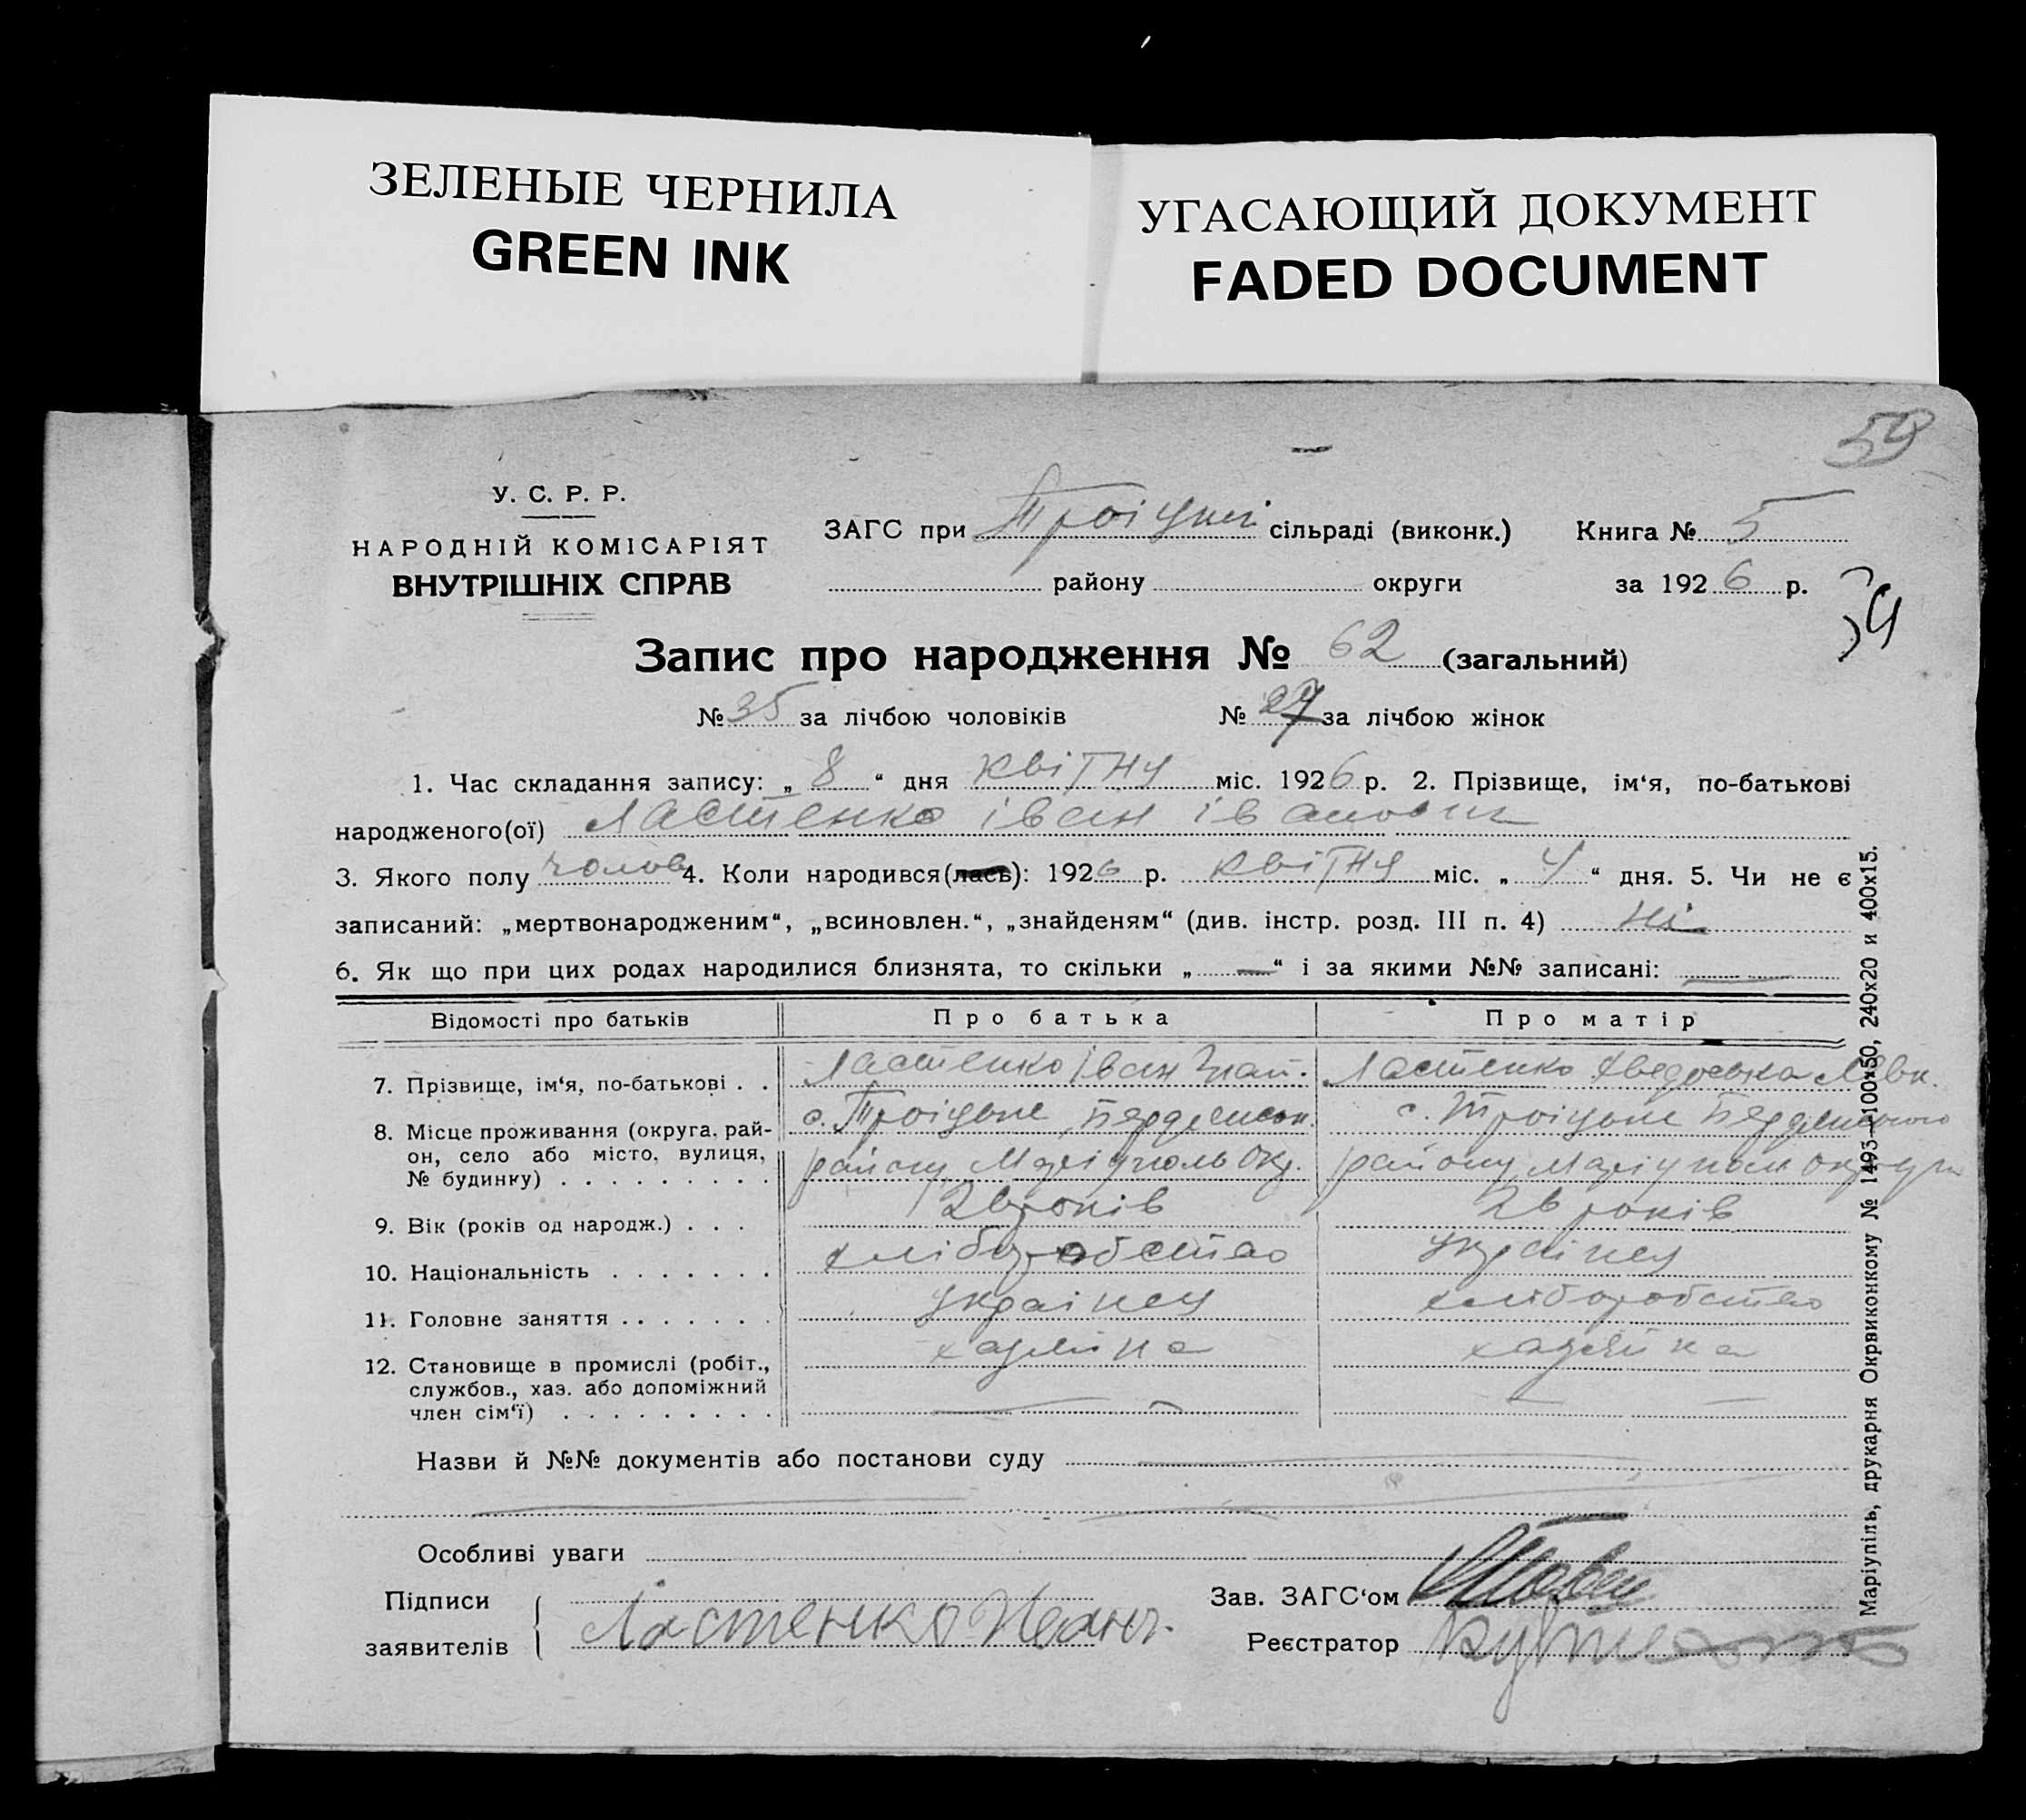 ЗЕЛЕНЫЕ ЧЕРНИЛА
GREEN INK
УГАСАЮЩИЙ ДОКУМЕНТ
FADED DOCUMENT
59
У. С. Р. Р.
НАРОДНІЙ КОМІСАРІЯТ
ВНУТРІШНІХ СПРАВ
ЗАГС при Троіцькі сільраді (виконк.) Книга № 5
району округи за 1926 р.
Запис про народження № 62 (загальний)
№ 35 за лічбою чоловіків № 27 за лічбою жінок
1. Час складання запису: „ 8 “ дня квітня міс. 1926 р. 2. Прізвище, ім‘я, по-батькові
народженого(ої) Ластенко іван іванович
3. Якого полу чолов 4. Коли народився(лась): 1926 р. квітня міс. „ 4 “ дня. 5. Чи не є
записаний: „мертвонародженим“, „всиновлен.“, „знайденям“ (див. інстр. розд. III п. 4) ні
6. Як що при цих родах народилися близнята, то скільки „ — “ і за якими №№ записані: —
Відомості про батьків Про батька Про матір
7. Прізвище, ім‘я, по-батькові . . Ластенко іван Ластенко
8. Місце проживання (округа, рай- с. Троіцьке, Бердянськ. с. Троіцьке Бердянського
он, село або місто, вулиця, району Маріуполь Окр. району Маріуполь округи
№ будинку) . . . . . . . . .
9. Вік (років од народж.) . . . 26 років 26 років
10. Національність . . . . . . . хліборобство Украінец
11. Головне заняття . . . . . . . Украінец хліборобство
12. Становище в промислі (робіт., хазяіна хазяіна
службов., хаз. або допоміжний
член сім‘ї) . . . . . . . . . — —
Назви й №№ документів або постанови суду
Особливі уваги
Підписи
заявителів Ластенко Иван
Зав. ЗАГС‘ом
Реєстратор
Маріупіль, друкарня Окрвиконкому № 1493—100×50, 240×20 и 400×15.